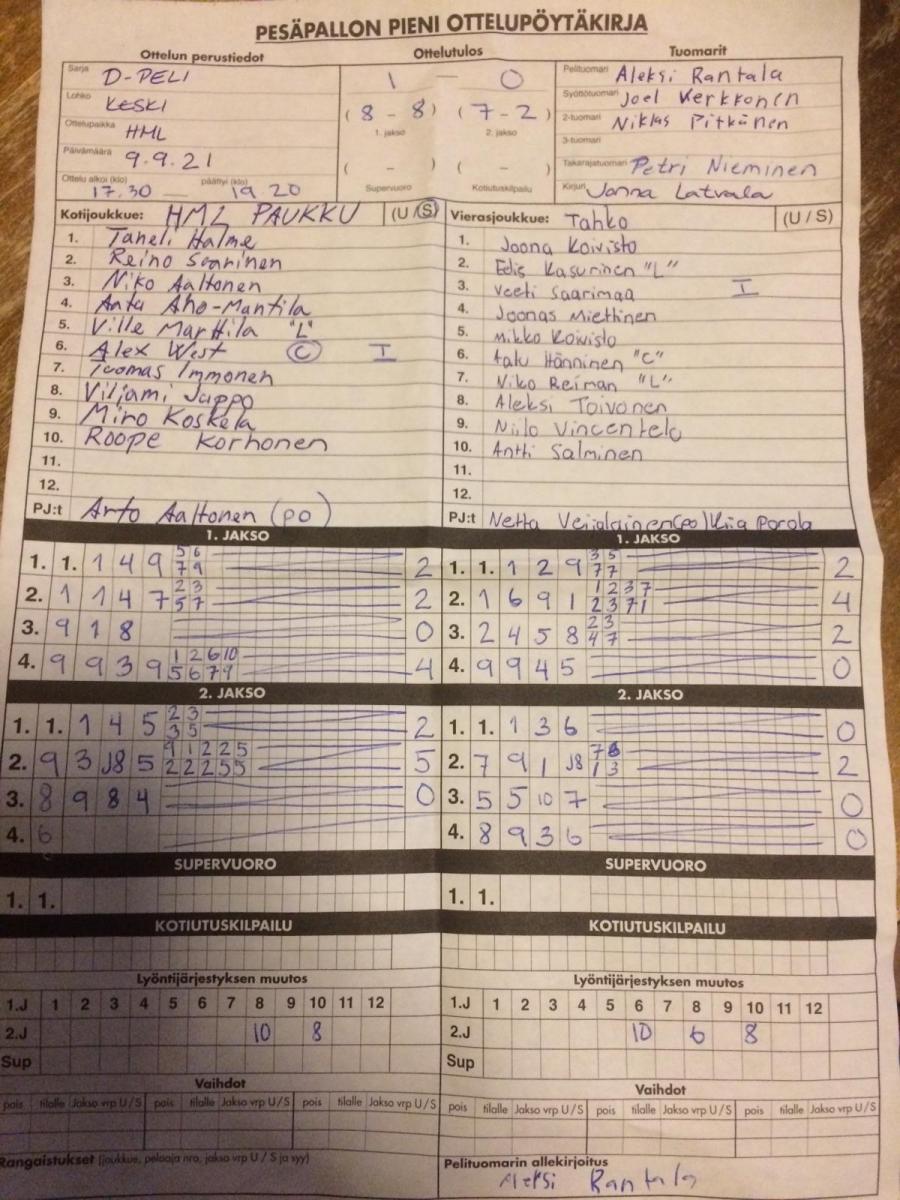 PESÄPALLON PIENI OTTELUPÖYTÄKIRJA
Ottelun perustiedot
Sarja D-PELI
Lohko KESKI
Ottelupaikka HML
Päivämäärä 9.9.21
Ottelu alkoi (klo) päättyi (klo)
17.30 — 19 20
Ottelutulos
1 — 0
(8 - 8) (7 - 2)
1. jakso 2. jakso
( - ) ( - )
Supervuoro Kotiutuskilpailu
Tuomarit
Pelituomari Aleksi Rantala
Syöttötuomari Joel Verkkonen
2-tuomari Niklas Pitkänen
3-tuomari
Takarajatuomari Petri Nieminen
Kirjuri Janna Latvala
Kotijoukkue: HML PAUKKU (U/S)
1. Taneli Halme
2. Reino Saarinen
3. Niko Aaltonen
4. Anta Aho-Mantila
5. Ville Marttila "L"
6. Alex West C I
7. Tuomas Immonen
8. Viljami Jappo
9. Miro Koskela
10. Roope Korhonen
11.
12.
PJ:t Arto Aaltonen (po)
Vierasjoukkue: Tahko (U / S)
1. Joona Koivisto
2. Edis Kasurinen "L"
3. Veeti Saarimaa I
4. Joonas Miettinen
5. Mikko Koivisto
6. Hänninen "C"
7. Niko Reiman "L"
8. Aleksi Toivonen
9. Niilo Vincentelo
10. Antti Salminen
11.
12.
PJ:t Netta (po)/Kiia Porola
1. JAKSO
1. 1. 1 4 9 5 6 2
7 9
2. 1 1 4 7 2 3 2
5 7
3. 9 1 8 0
4. 9 9 3 9 1 2 6 10 4
5 6 7 9
2. JAKSO
1. 1. 1 4 5 2 3 2
3 5
2. 9 3 J8 5 9 1 2 2 5 5
2 2 2 5 5
3. 8 9 8 4 0
4. 6
SUPERVUORO
1. 1.
KOTIUTUSKILPAILU
Lyöntijärjestyksen muutos
1.J 1 2 3 4 5 6 7 8 9 10 11 12
2.J 10 8
Sup
Vaihdot
pois tilalle Jakso vrp U/S pois tilalle Jakso vrp U/S pois tilalle Jakso vrp U/S
Rangaistukset (joukkue, pelaaja nro, jakso vrp U / S ja syy)
1. JAKSO
1. 1. 1 2 9 3 5 2
7 7
2. 1 6 9 1 1 2 3 7 4
2 3 7 1
3. 2 4 5 8 2 3 2
4 7
4. 9 9 4 5 0
2. JAKSO
1. 1. 1 3 6 0
2. 7 9 1 J8 7 8 2
1 3
3. 5 5 10 7 0
4. 8 9 3 6 0
SUPERVUORO
1. 1.
KOTIUTUSKILPAILU
Lyöntijärjestyksen muutos
1.J 1 2 3 4 5 6 7 8 9 10 11 12
2.J 10 6 8
Sup
Vaihdot
pois tilalle Jakso vrp U/S pois tilalle Jakso vrp U/S pois tilalle Jakso vrp U/S
Pelituomarin allekirjoitus
Aleksi Rantala